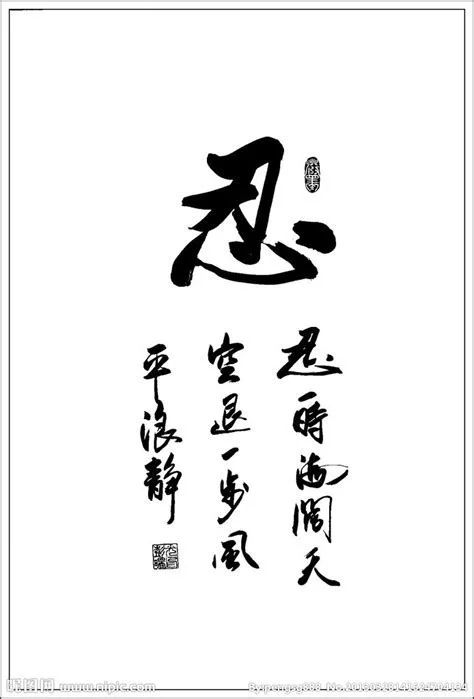 忍
忍一時海闊天
空退一步風
平浪静
昵图网 www.nipic.com